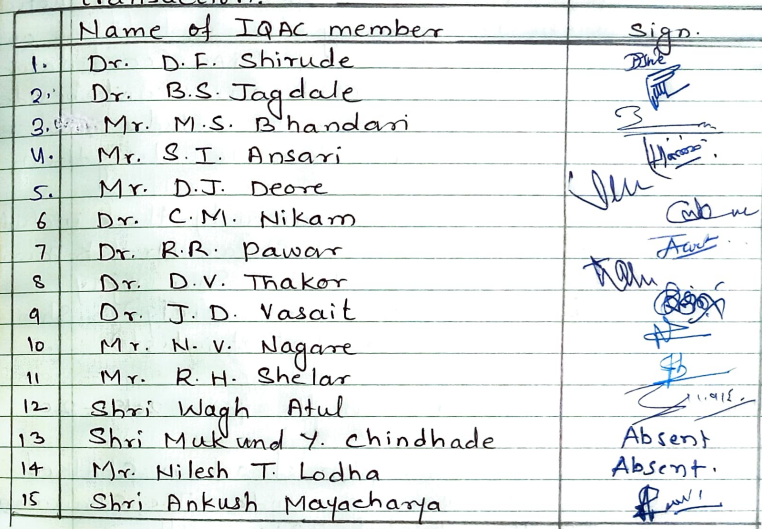 transaction.
Name of IQAC member Sign.
1. Dr. D.F. Shirude
2. Dr. B.S. Jagdale
3. Mr. M.S. Bhandari
4. Mr. S.I. Ansari
5. Mr. D.J. Deore
6 Dr. C.M. Nikam
7 Dr. R.R. Pawar
8 Dr. D.V. Thakor
9 Dr. J.D. Vasait
10 Mr. N.V. Nagare
11 Mr. R.H. Shelar
12 Shri Wagh Atul
13 Shri Mukund Y. Chindhade Absent
14 Mr. Nilesh T. Lodha Absent.
15 Shri Ankush Mayacharya